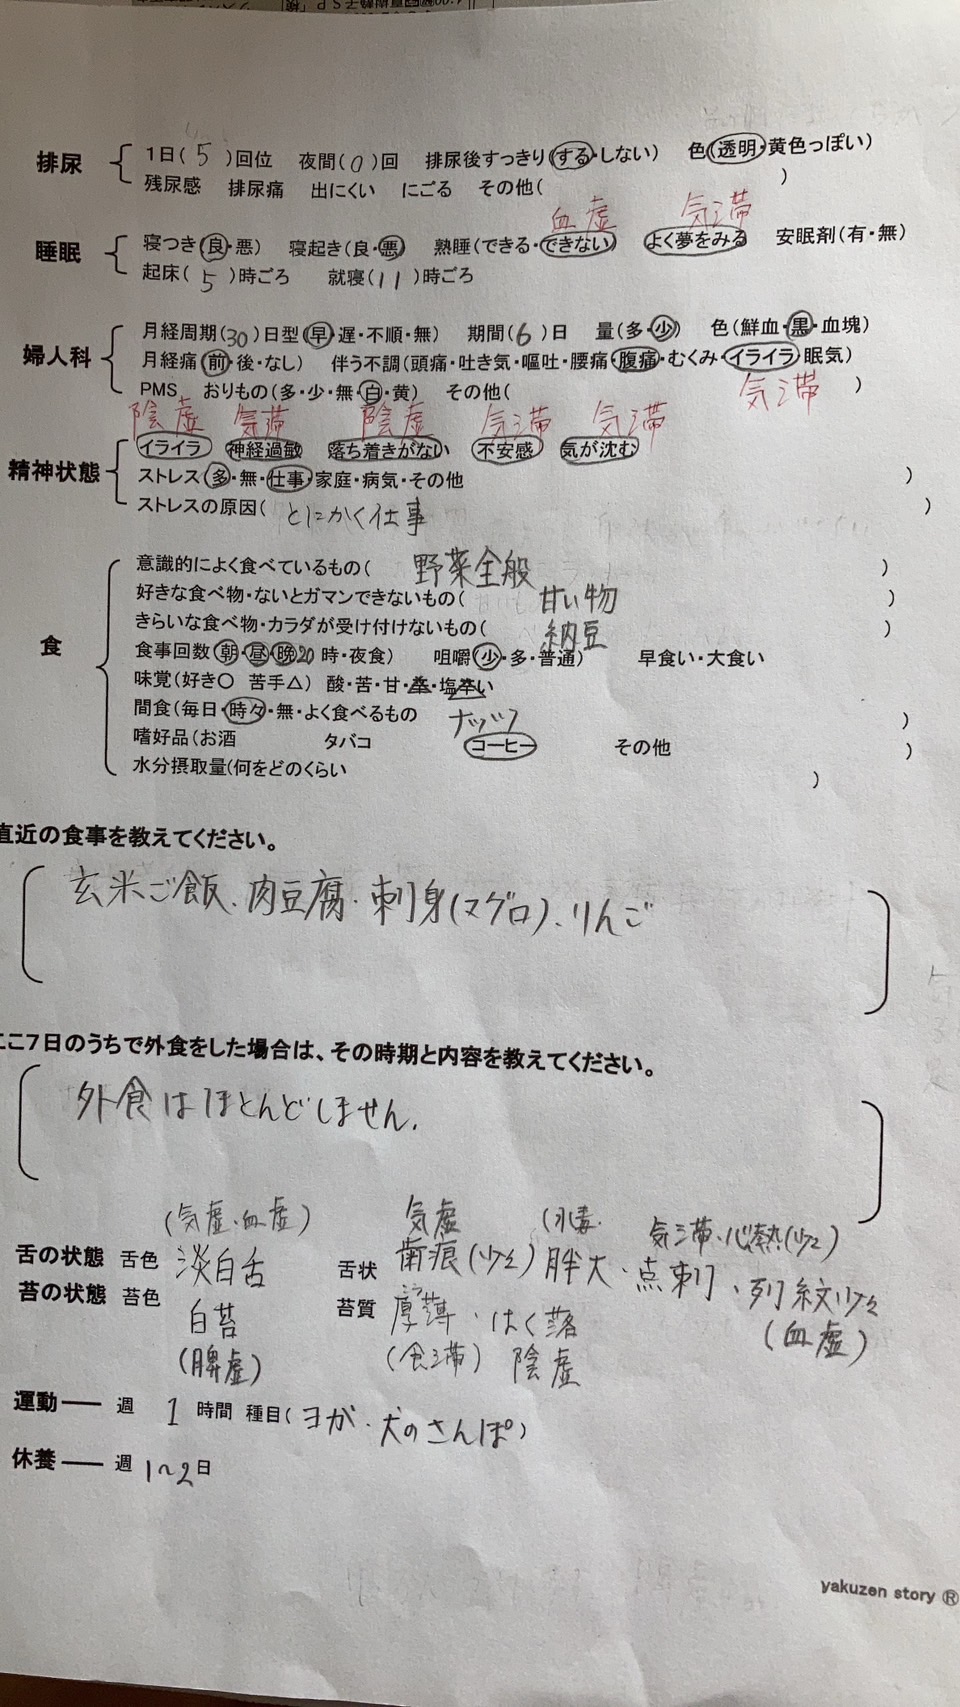 排尿 1日( 5 )回位 夜間( 0 )回 排尿後すっきり(する・しない) 色(透明・黄色っぽい)
残尿感 排尿痛 出にくい にごる その他( )
血虚 気滞
睡眠 寝つき(良・悪) 寝起き(良・悪) 熟睡(できる・できない) よく夢をみる 安眠剤(有・無)
起床( 5 )時ごろ 就寝( 11 )時ごろ
婦人科 月経周期( 30 )日型(早・遅・不順・無) 期間( 6 )日 量(多・少) 色(鮮血・黒・血塊)
月経痛(前・後・なし) 伴う不調(頭痛・吐き気・嘔吐・腰痛・腹痛・むくみ・イライラ・眠気)
PMS おりもの(多・少・無・白・黄) その他( )
気滞
陰虚 気滞 陰虚 気滞 気滞
精神状態 イライラ 神経過敏 落ち着きがない 不安感 気が沈む
ストレス(多・無・仕事・家庭・病気・その他 )
ストレスの原因( とにかく仕事 )
食 意識的によく食べているもの( 野菜全般 )
好きな食べ物・ないとガマンできないもの( 甘い物 )
きらいな食べ物・カラダが受け付けないもの( 納豆 )
食事回数(朝・昼・晩20時・夜食) 咀嚼(少・多・普通) 早食い・大食い
味覚(好き〇 苦手△) 酸・苦・甘・辛・塩辛い
間食(毎日・時々・無・よく食べるもの ナッツ )
嗜好品(お酒 タバコ コーヒー その他 )
水分摂取量(何をどのくらい )
直近の食事を教えてください。
玄米ご飯、肉豆腐・刺身(マグロ)、りんご
ここ7日のうちで外食をした場合は、その時期と内容を教えてください。
外食はほとんどしません。
(気虚・血虚) 気虚 (水毒・ 気滞・心熱(少々)
舌の状態 舌色 淡白舌 舌状 歯痕(少々) 胖大・点刺・列紋少々
(血虚)
苔の状態 苔色 白苔 苔質 厚薄・はく落
(脾虚) (食滞) 陰虚
運動── 週 1 時間 種目( ヨガ・犬のさんぽ )
休養── 週 1〜2 日
yakuzen story ®